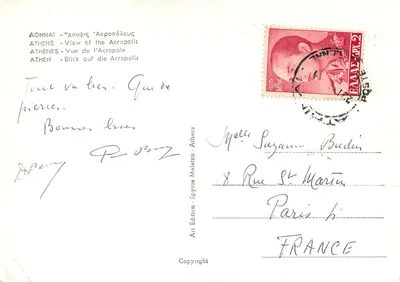 ΑΘΗΝΑΙ - Ἄποψις Ἀκροπόλεως
ATHENS - View of the Acropolis
ATHÈNES - Vue de l'Acropole
ATHEN - Blick auf die Acropolis
Tout va bien.
Bonnes bises
Art Edition - Spyros Meletzis - Athens
Copyright
ΕΛΛΑΣ ΔΡΧ. 2
Melle Suzanne Budin
8 Rue St Martin
Paris
FRANCE